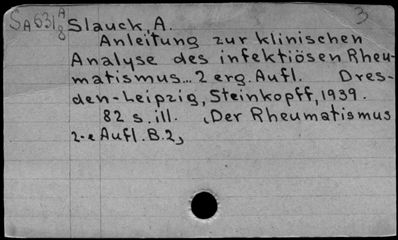 3
SA631 A/8 Slauck, A.
Anleitung zur klinischen
Analyse des infektiösen Rheu-
matismus... 2 erg. Aufl. Dres-
den-Leipzig, Steinkopff, 1939.
82 s. ill. (Der Rheumatismus
2-e Aufl. B.2)